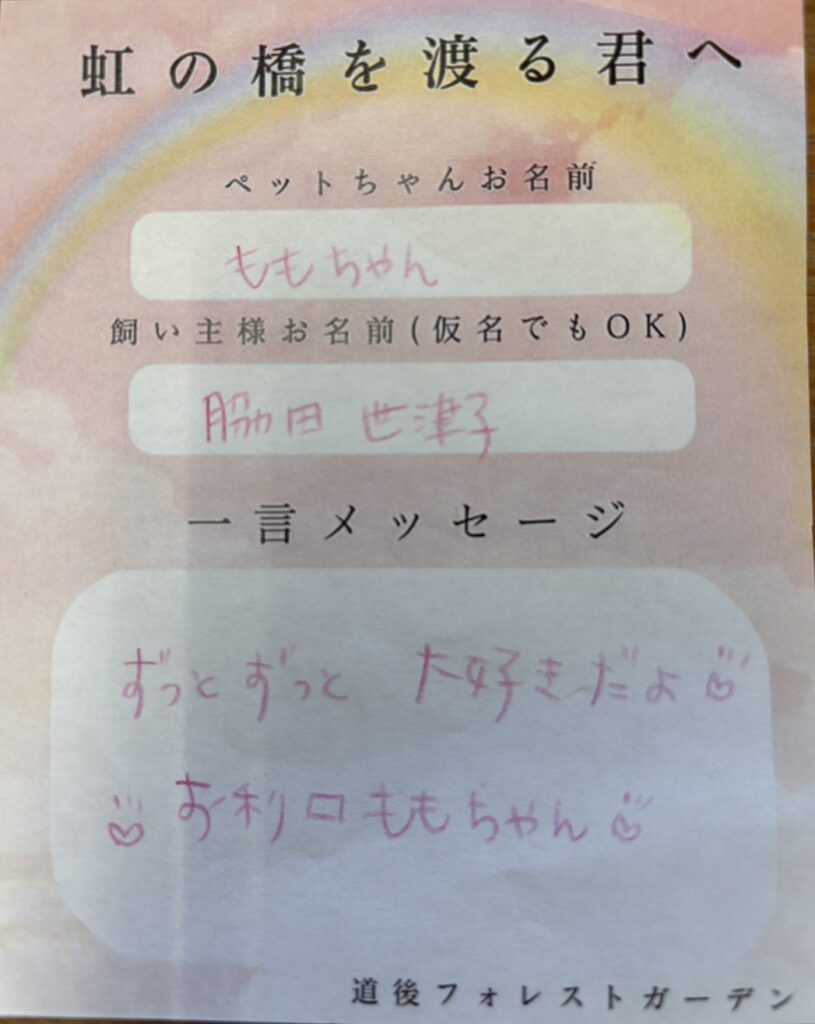 虹の橋を渡る君へ
ペットちゃんお名前
ももちゃん
飼い主様お名前(仮名でもOK)
脇田 世津子
一言メッセージ
ずっとずっと 大好きだよ
お利口ももちゃん
道後フォレストガーデン